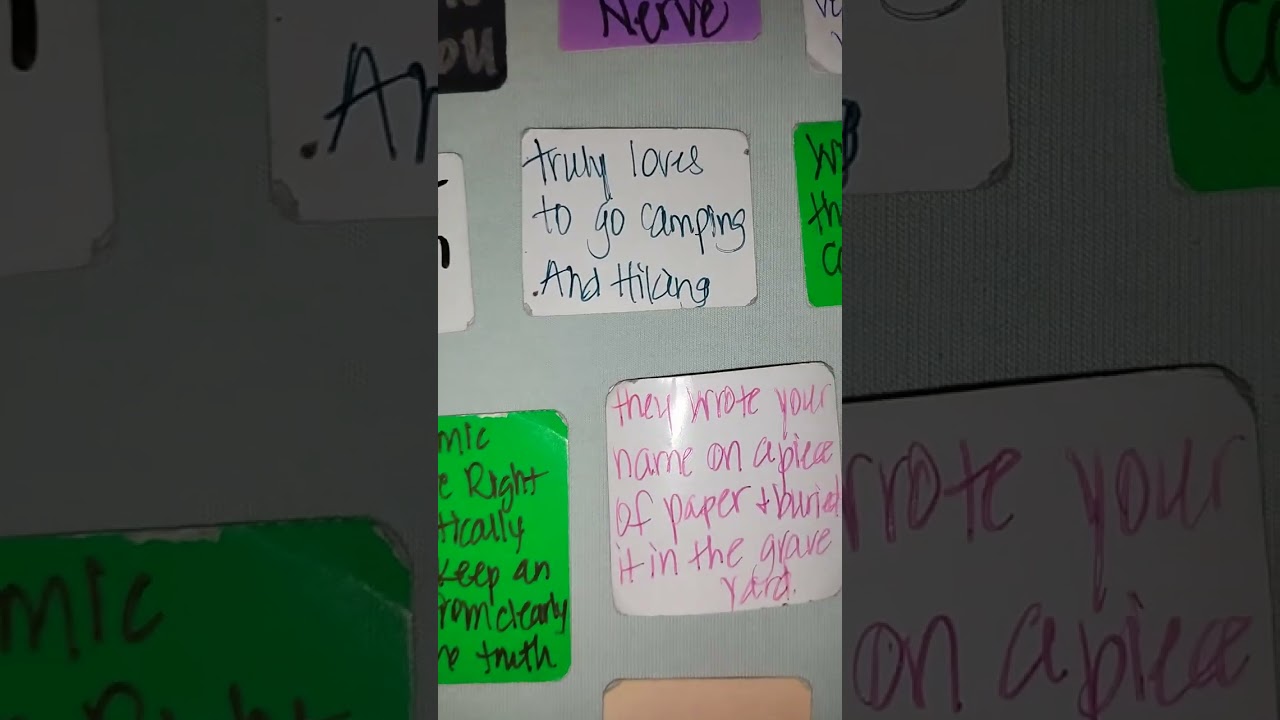 ou
Nerve
truly loves
to go camping
.And Hiking
mic
e Right
tically
keep an
rom clearly
e truth
they wrote your
name on a piece
of paper + buried
it in the grave
yard.